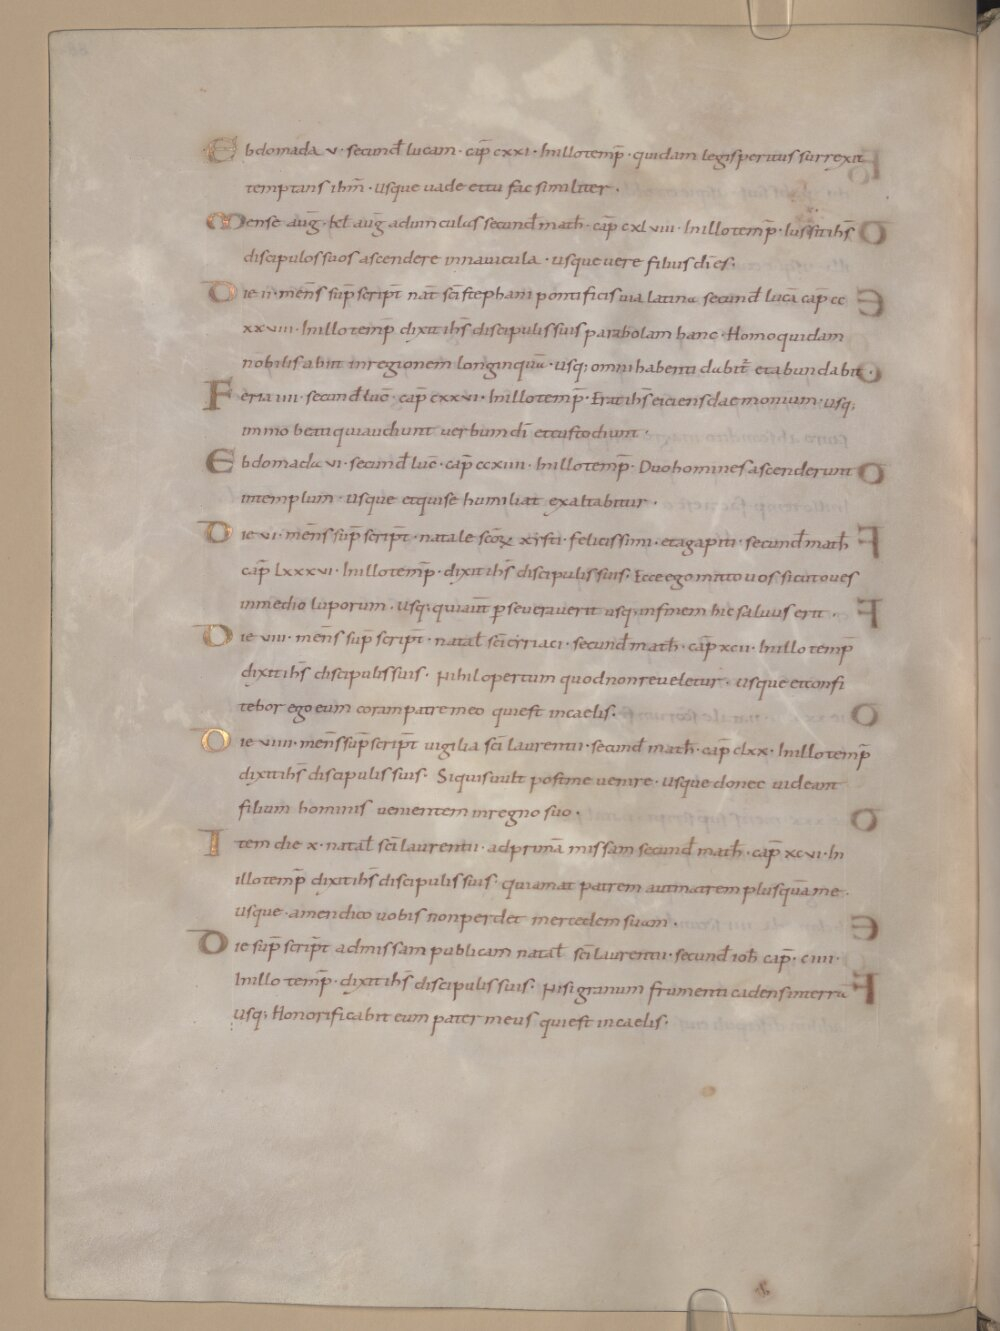 Ebdomada v · secund̄ lucam · cap̄ cxxi · Inillotemp̄ · quidam legisperitus surrexit
temptans ihm̄ · usque uade ettu fac similiter ·
Mense aug̅ · kɫ aug̅ aduinculas secund̄ math̄ · cap̄ cxlviii · Inillotemp̄ · Iussit ihs̄
discipulos suos ascendere innauicula · usque uere filius dī es ·
Die ii · mens̄ sup̄ script̄ nat̄ scī stephani pontificis uia latina secund̄ lucā cap̄ cc
xxviii · Inillotemp̄ dixit ihs̄ discipulis suis parabolam hanc · Homo quidam
nobilis abiit inregionem longinquā · usq; omni habenti dabit̄ et abundabit ·
Feria iiii · secund̄ luc̄ · cap̄ cxxvi · Inillotemp̄ · Erat ihs̄ eiciens daemonium · usq;
immo beati qui audiunt uerbum dī et custodiunt ·
Ebdomada vi · secund̄ luc̄ · cap̄ ccxiiii · Inillotemp̄ · Duo homines ascenderunt
intemplum · usque et qui se humiliat exaltabitur ·
Die vi · mens̄ sup̄ script̄ · natale scōꝝ xysti · felicissimi · et agapiti · secund̄ math̄
cap̄ lxxxvi · Inillotemp̄ · dixit ihs̄ discipulis suis · Ecce ego mitto uos sicut oues
inmedio luporum · usq; qui aut̄ perseuerauerit usq; infinem hic saluus erit ·
Die viii · mens̄ sup̄ script̄ · nataɫ scī cyriaci · secund̄ math̄ · cap̄ xcii · Inillo temp̄
dixit ihs̄ discipulis suis · Nihil opertum quod non reueletur · usque et confi
tebor ego eum coram patre meo qui est incaelis ·
Die viiii · mens̄ sup̄ script̄ uigilia scī laurentii · secund̄ math̄ · cap̄ clxx · Inillotemp̄
dixit ihs̄ discipulis suis · Siquis uult post me uenire · usque donec uideant
filium hominis uenientem inregno suo ·
Item die x · nataɫ scī laurentii · ad primā missam secund̄ math̄ · cap̄ xcvi · In
illotemp̄ dixit ihs̄ discipulis suis · qui amat patrem aut matrem plusquā me ·
usque · amen dico uobis non perdet mercedem suam ·
Die sup̄ script̄ ad missam publicam nataɫ scī laurentii · secund̄ ioh̄ cap̄ · ciiii ·
Inillo temp̄ · dixit ihs̄ discipulis suis · Nisi granum frumenti cadens interra
usq; Honorificabit eum pater meus qui est incaelis ·